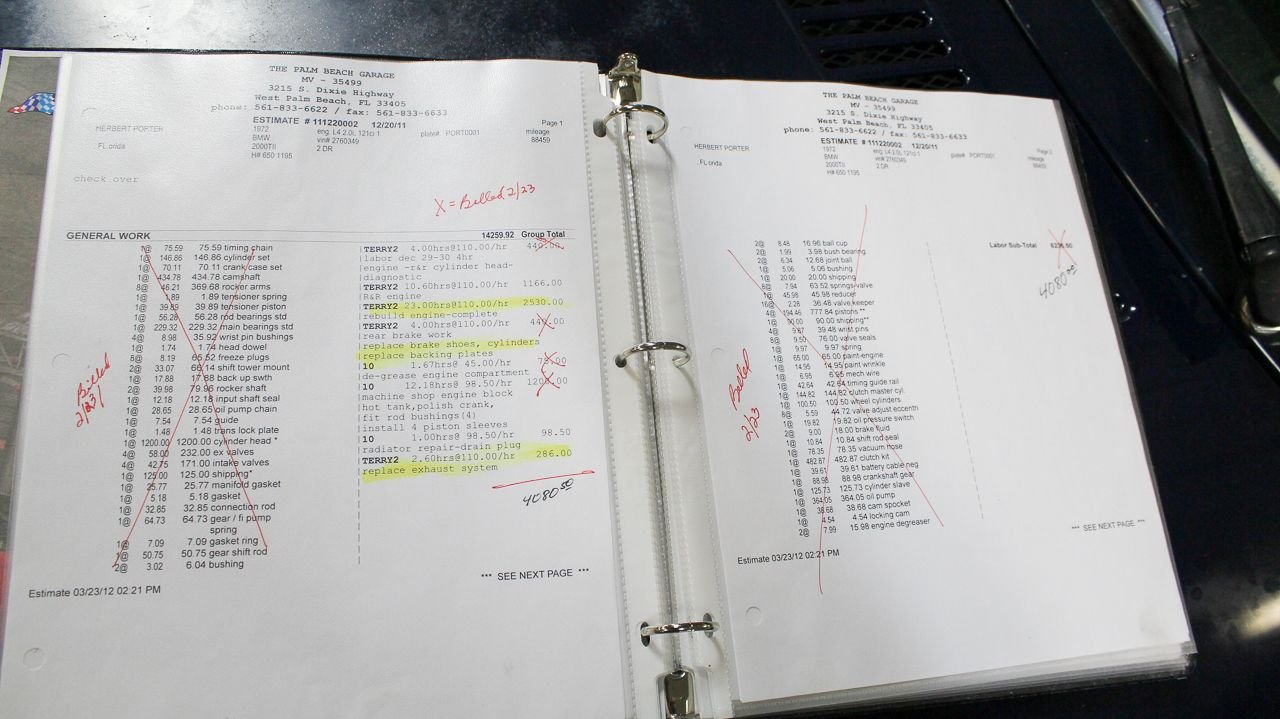 THE PALM BEACH GARAGE
MV - 35499
3215 S. Dixie Highway
West Palm Beach, FL 33405
phone: 561-833-6622 / fax: 561-833-6633
ESTIMATE # 111220002 12/20/11
Page 1
HERBERT PORTER
1972 eng. L4 2.0L 121ci 1 plate# PORT0001 mileage
BMW vin# 2760349 88459
FL orida
2000TII 2 DR
H# 650 1195
check over
X = Billed 2/23
GENERAL WORK 14259.92 Group Total
1@ 75.59 75.59 timing chain
1@ 146.86 146.86 cylinder set
1@ 70.11 70.11 crank case set
1@ 434.78 434.78 camshaft
8@ 46.21 369.68 rocker arms
1@ 1.89 1.89 tensioner spring
1@ 39.89 39.89 tensioner piston
1@ 56.28 56.28 rod bearings std
1@ 229.32 229.32 main bearings std
4@ 8.98 35.92 wrist pin bushings
1@ 1.74 1.74 head dowel
8@ 8.19 65.52 freeze plugs
2@ 33.07 66.14 shift tower mount
1@ 17.88 17.88 back up swth
2@ 39.98 79.96 rocker shaft
1@ 12.15 12.15 input shaft seal
1@ 28.65 28.65 oil pump chain
1@ 7.54 7.54 guide
1@ 1.48 1.48 trans lock plate
1@ 1200.00 1200.00 cylinder head *
4@ 58.00 232.00 ex valves
4@ 42.75 171.00 intake valves
1@ 125.00 125.00 shipping*
1@ 25.77 25.77 manifold gasket
1@ 5.18 5.18 gasket
1@ 32.85 32.85 connection rod
1@ 64.73 64.73 gear / fi pump
spring
1@ 7.09 7.09 gasket ring
1@ 50.75 50.75 gear shift rod
2@ 3.02 6.04 bushing
TERRY2 4.00hrs@110.00/hr 440.00
labor dec 29-30 4hr
engine -r&r cylinder head-
diagnostic
TERRY2 10.60hrs@110.00/hr 1166.00
R&R engine
TERRY2 23.00hrs@110.00/hr 2530.00
rebuild engine-complete
TERRY2 4.00hrs@110.00/hr 440.00
rear brake work
replace brake shoes, cylinders
replace backing plates
10 1.67hrs@ 45.00/hr
de-grease engine compartment
10 12.18hrs@ 98.50/hr
machine shop engine block
hot tank,polish crank,
fit rod bushings(4)
install 4 piston sleeves
10 1.00hrs@ 98.50/hr 98.50
radiator repair-drain plug
TERRY2 2.60hrs@110.00/hr 286.00
replace exhaust system
4080.50
Billed
2/23
*** SEE NEXT PAGE ***
Estimate 03/23/12 02:21 PM
THE PALM BEACH GARAGE
MV - 35499
3215 S. Dixie Highway
West Palm Beach, FL 33405
phone: 561-833-6622 / fax: 561-833-6633
ESTIMATE # 111220002 12/20/11
Page 2
HERBERT PORTER
1972 eng. L4 2.0L 121ci 1 plate# PORT0001 mileage
BMW vin# 2760349 88459
FL orida
2000TII 2 DR
H# 650 1195
2@ 8.48 16.96 ball cup
2@ 1.99 3.98 bush bearing
2@ 6.34 12.68 joint ball
1@ 5.06 5.06 bushing
1@ 20.00 20.00 shipping
8@ 7.94 63.52 springs-valve
1@ 45.98 45.98 reducer
16@ 2.28 36.48 valve keeper
4@ 194.46 777.84 pistons **
1@ 90.00 90.00 shipping**
4@ 9.87 39.48 wrist pins
8@ 9.50 76.00 valve seals
1@ 9.97 9.97 spring
1@ 65.00 65.00 paint-engine
1@ 14.95 14.95 paint wrinkle
1@ 6.95 6.95 mech wire
1@ 42.64 42.64 timing guide rail
1@ 144.82 144.82 clutch master cyl.
1@ 100.50 100.50 wheel cylinders
8@ 5.59 44.72 valve adjust eccentr
1@ 19.82 19.82 oil pressure switch
2@ 9.00 18.00 brake fluid
1@ 10.84 10.84 shift rod seal
1@ 78.35 78.35 vacuum hose
1@ 482.87 482.87 clutch kit
1@ 39.61 39.61 battery cable neg
1@ 88.98 88.98 crankshaft gear
1@ 125.73 125.73 cylinder slave
1@ 364.05 364.05 oil pump
1@ 38.68 38.68 cam spocket
1@ 4.54 4.54 locking cam
2@ 7.99 15.98 engine degreaser
Labor Sub-Total
4080.50
Billed
2/23
*** SEE NEXT PAGE ***
Estimate 03/23/12 02:21 PM